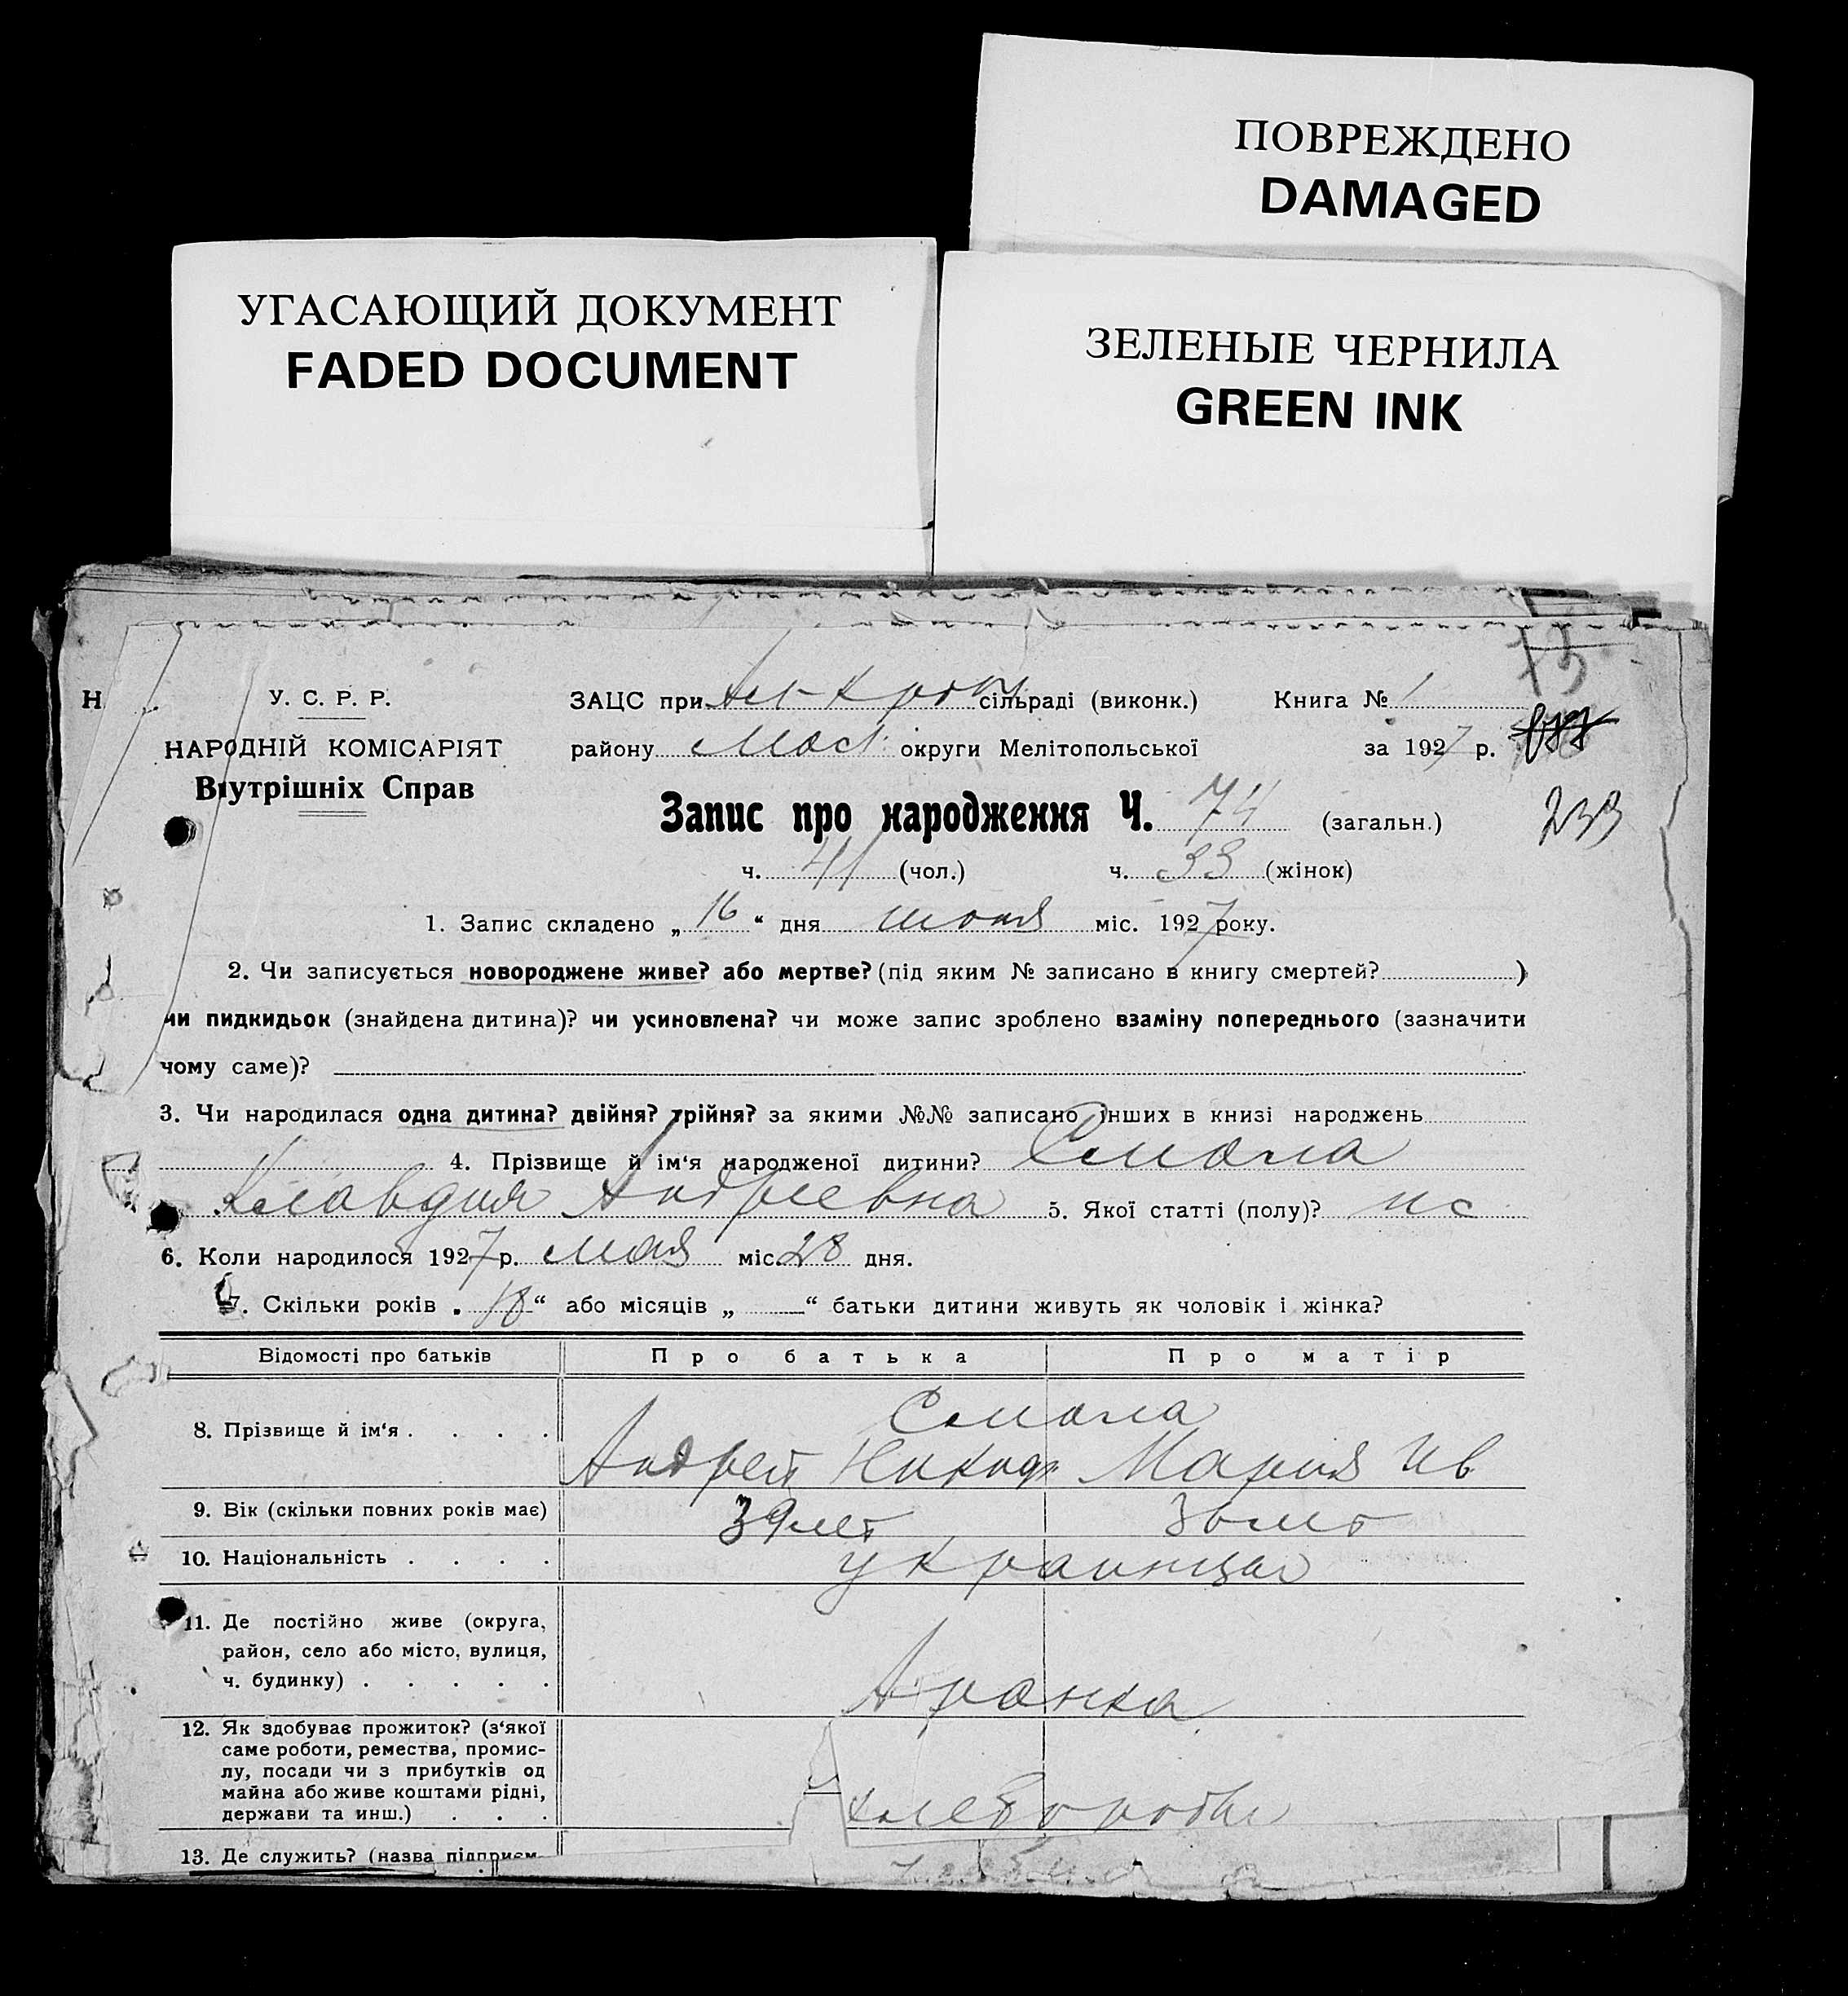 ПОВРЕЖДЕНО
DAMAGED
УГАСАЮЩИЙ ДОКУМЕНТ
FADED DOCUMENT
ЗЕЛЕНЫЕ ЧЕРНИЛА
GREEN INK
73
Н
У. С. Р. Р.
НАРОДНІЙ КОМІСАРІЯТ
Внутрішніх Справ
ЗАЦС при сільраді (виконк.) Книга № 1
району округи Мелітопольської за 1927 р.
233
Запис про народження Ч. 74 (загальн.)
ч. 41 (чол.) ч. 33 (жінок)
1. Запис складено „ 16 “ дня июня міс. 1927 року.
2. Чи записується новороджене живе? або мертве? (під яким № записано в книгу смертей? )
чи пидкидьок (знайдена дитина)? чи усиновлена? чи може запис зроблено взаміну попереднього (зазначити
чому саме)?
3. Чи народилася одна дитина? двійня? трійня? за якими №№ записано інших в книзі народжень
4. Прізвище й ім‘я народженої дитини? Смола
Клавдия Андреевна 5. Якої статті (полу)?
6. Коли народилося 1927 р. мая міс. 28 дня.
7. Скільки років „ 18 “ або місяців „ “ батьки дитини живуть як чоловік і жінка?
Відомості про батьків Про батька Про матір
8. Прізвище й ім‘я . . . . Смола
Андрей Никиф Мария Ив
9. Вік (скільки повних років має) 39 лет лет
10. Національність . . . . украинцы
11. Де постійно живе (округа,
район, село або місто, вулиця,
ч. будинку) . . . . .
12. Як здобуває прожиток? (з‘якої
саме роботи, ремества, промис-
лу, посади чи з прибутків од
майна або живе коштами рідні,
держави та инш.) . . . хлебороб
13. Де служить? (назва підприєм-